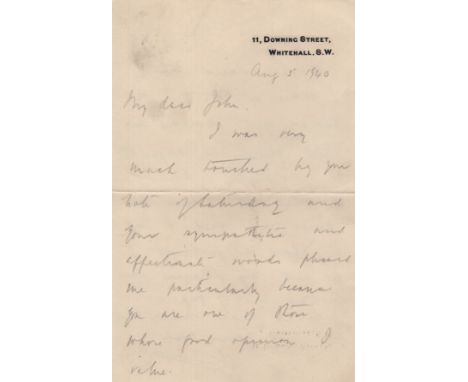 11, Downing Street,
Whitehall, S.W.
Aug 5 1940
My dear John.
I was very
much touched by your
note of Saturday and
your sympathetic and
affectionate words pleased
me particularly because
you are one of those
whose good opinion I
value.